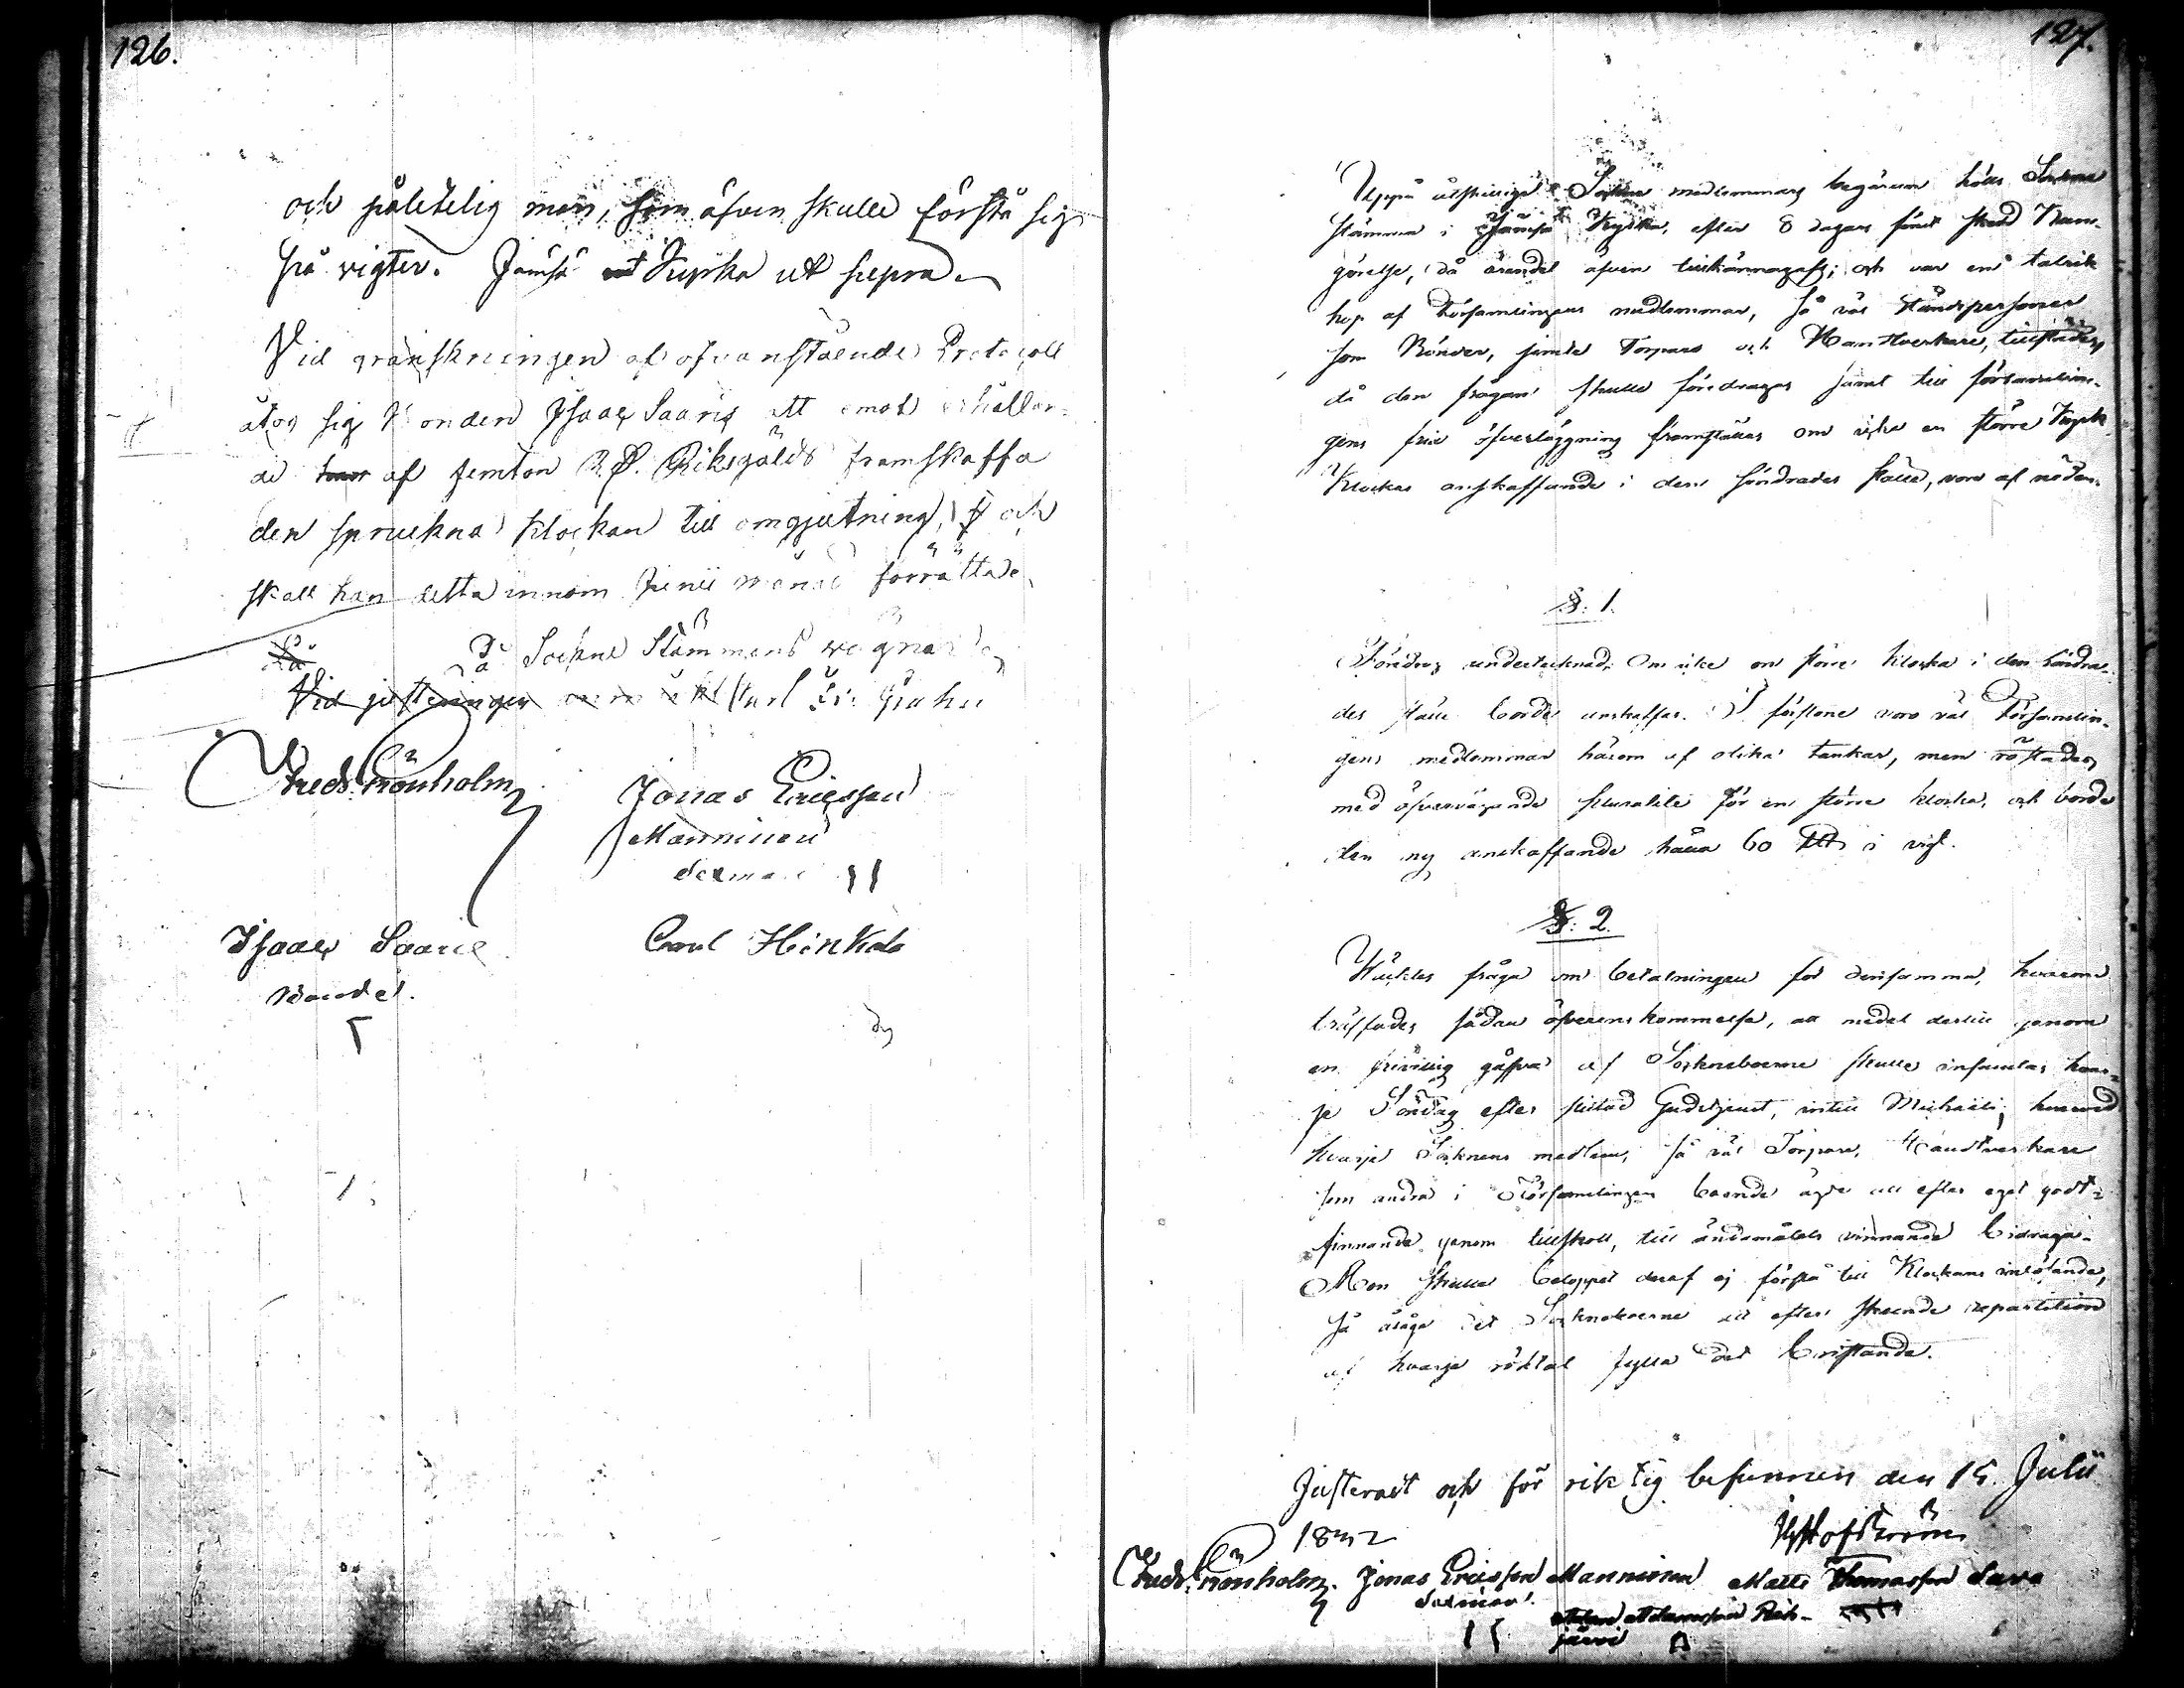 126.
och pålitelig man, som äfven skulle förstå sig
på vigter. Jämsä Kyrka ut supra.
Vid granskningen af ofvanstående Protocoll
åtog sig Bonden Isaac Saaris att emot erhållan-
de af femton R.D. Riksgälds framskaffa
den spruckna klockan till omgjutning, och
skall han detta innom Junii månad förrätta.
På Sockne Stämmans vägnar
Vid justeringen Carl Er: Grahn
Fredr. Grönholm
Jonas Ericsson
Manninen
Sexman
Isaac Saarie
Bonde.
Carl Heinkds
127.
Uppå åtskillige Sockne medlemmars begäran hölls Sockne
stämma i Jämsä Kyrka, efter 8 dagars förut skedd Kun-
görelse, då ärendet äfven tillkännagafs; och var en talrik
hop af Församlingens medlemmar, så väl Ståndspersoner
som Bönder, jemte Torpare och Handtverkare, tillstädes
då den frågan skulle föredragas samt till församlin-
gens fria öfverläggning framställas om icke en större Kyrk
Klockas anskaffande i den söndrades ställe, vore af nöden.
§: 1.
undertecknad: Om icke en större klocka i den söndra-
des ställe borde anskaffas. I förstone voro väl Församlin-
gens medlemmar härom af olika tankar, men röstades
med öfvervägande pluralité för en större klocka, och borde
den ny anskaffande hålla 60 i vigt.
§: 2.
Väcktes fråga om betalningen för densamma, hvarom
träffades sådan öfverenskommelse, att medel dertill genom
en frivillig gåfva af Sockneboerne skulle insamlas hvar-
je Söndag efter slutad Gudstjenst, intill Michaeli, hvarvid
hvarje Socknens medlem, så väl Torpare, Handtverkare
som andra i Församlingen boende ägde att efter eget godt-
finnande genom tillskott, till ändamålets vinnande bidraga.
Men skulle beloppet deraf ej förslå till Klockans inlösande,
så åtage det Sockneboerne att efter skeende repartition
af hvarje röktal fylla det bristande.
Justerat och för riktig befunnen den 15. Julii
1832
Hofström
Fredr. Grönholm. Jonas Ericsson Manninen Matts Thomasson Sava
Sexman.
Adamsson Päi-
järvi